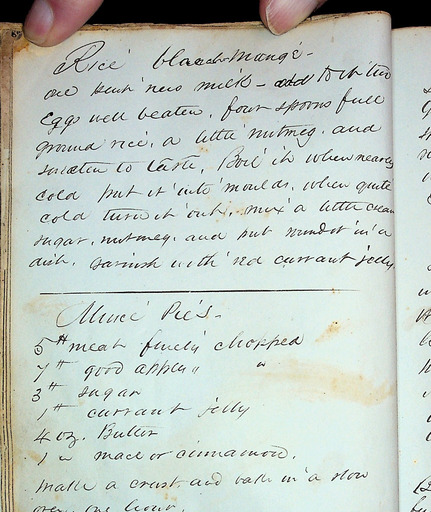 Rice blanch-Mange -
one pint new milk - add to it two
Eggs well beaten, four spoons full
ground rice, a little nutmeg, and
sweeten to taste, Boil it when nearly
cold put it into moulds, when quite
cold turn it out, mix a little cream
sugar, nutmeg, and put round it in a
dish, garnish with red currant jelly.
Mince Pies -
5 # meat finely chopped
7 " good apples " "
3 " sugar
1 " currant jelly
4 oz. Butter
1 " mace or cinnamon.
make a crust and bake in a slow
oven, one hour.